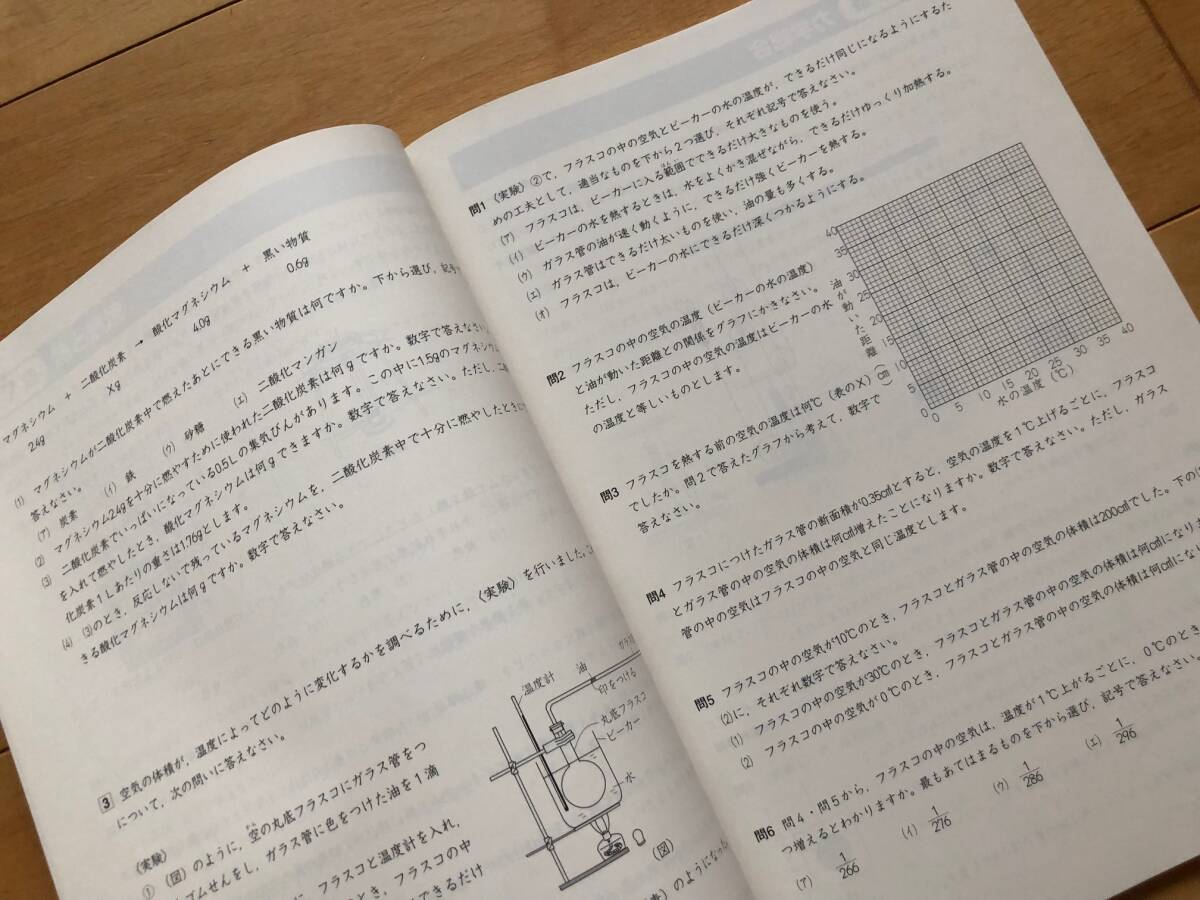 マグネシウム + 二酸化炭素 → 酸化マグネシウム + 黒い物質
2.4g Xg 4.0g 0.6g
(1) マグネシウムが二酸化炭素中で燃えたあとにできる黒い物質は何ですか。下から選び，記号
答えなさい。
(ア) 炭素 (イ) 鉄 (ウ) 砂糖 (エ) 二酸化マンガン
(2) マグネシウム2.4gを十分に燃やすために使われた二酸化炭素は何gですか。数字で答えなさい。
(3) 二酸化炭素でいっぱいになっている0.5Lの集気びんがあります。この中に1.5gのマグネシウム
を入れて燃やしたとき，酸化マグネシウムは何gできますか。数字で答えなさい。ただし，二
化炭素1Lあたりの重さは1.76gとします。
(4) (3)のとき，反応しないで残っているマグネシウムを，二酸化炭素中で十分に燃やしたときに
きる酸化マグネシウムは何gですか。数字で答えなさい。
3 空気の体積が，温度によってどのように変化するかを調べるために，〈実験〉を行いました。
について，次の問いに答えなさい。
〈実験〉
① 〈図〉のように，空の丸底フラスコにガラス管をつ
ゴムせんをし，ガラス管に色をつけた油を1滴
フラスコと温度計を入れ，
とき，フラスコの中
できるだけ
のようになっ
温度計
油
ガラス
印をつける
丸底フラスコ
ビーカー
水
〈図〉
問1 〈実験〉②で，フラスコの中の空気とビーカーの水の温度が，できるだけ同じになるようにするた
めの工夫として，適当なものを下から2つ選び，それぞれ記号で答えなさい。
(ア) フラスコは，ビーカーに入る範囲でできるだけ大きなものを使う。
(イ) ビーカーの水を熱するときは，水をよくかき混ぜながら，できるだけゆっくり加熱する。
(ウ) ガラス管の油が速く動くように，できるだけ強くビーカーを熱する。
(エ) ガラス管はできるだけ太いものを使い，油の量も多くする。
(オ) フラスコは，ビーカーの水にできるだけ深くつかるようにする。
問2 フラスコの中の空気の温度（ビーカーの水の温度）
と油が動いた距離との関係をグラフにかきなさい。
ただし，フラスコの中の空気の温度はビーカーの水
の温度と等しいものとします。
油が動いた距離(cm)
40
35
30
25
20
15
10
5
0
0 5 10 15 20 25 30 35 40
水の温度（℃）
問3 フラスコを熱する前の空気の温度は何℃（表のX）
でしたか。問2で答えたグラフから考えて，数字で
答えなさい。
問4 フラスコにつけたガラス管の断面積が0.35cm²とすると，空気の温度を1℃上げるごとに，フラスコ
とガラス管の中の空気の体積は何cm³増えたことになりますか。数字で答えなさい。ただし，ガラス
管の中の空気はフラスコの中の空気と同じ温度とします。
問5 フラスコの中の空気が10℃のとき，フラスコとガラス管の中の空気の体積は200cm³でした。下の
(2)に，それぞれ数字で答えなさい。
(1) フラスコの中の空気が30℃のとき，フラスコとガラス管の中の空気の体積は何cm³になりま
(2) フラスコの中の空気が0℃のとき，フラスコとガラス管の中の空気の体積は何cm³にな
問6 問4・問5から，フラスコの中の空気は，温度が1℃上がるごとに，0℃のとき
つ増えるとわかりますか。最もあてはまるものを下から選び，記号で答えなさい。
(ア) 1/266 (イ) 1/276 (ウ) 1/286 (エ) 1/296